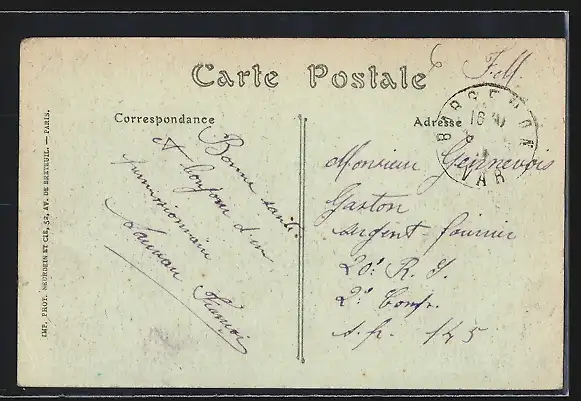 Carte Postale
F.M.
Correspondance
Adresse
BARGEMON
16
VAR
Bonne santé
et bonjour d'un
permissionnaire
François
Monsieur Gennevois
Gaston
sergent-fourrier
20e R. I.
2e Comp.
s.p. 145
IMP. PHOT. NEURDEIN ET CIE, 52, AV. DE BRETEUIL. — PARIS.